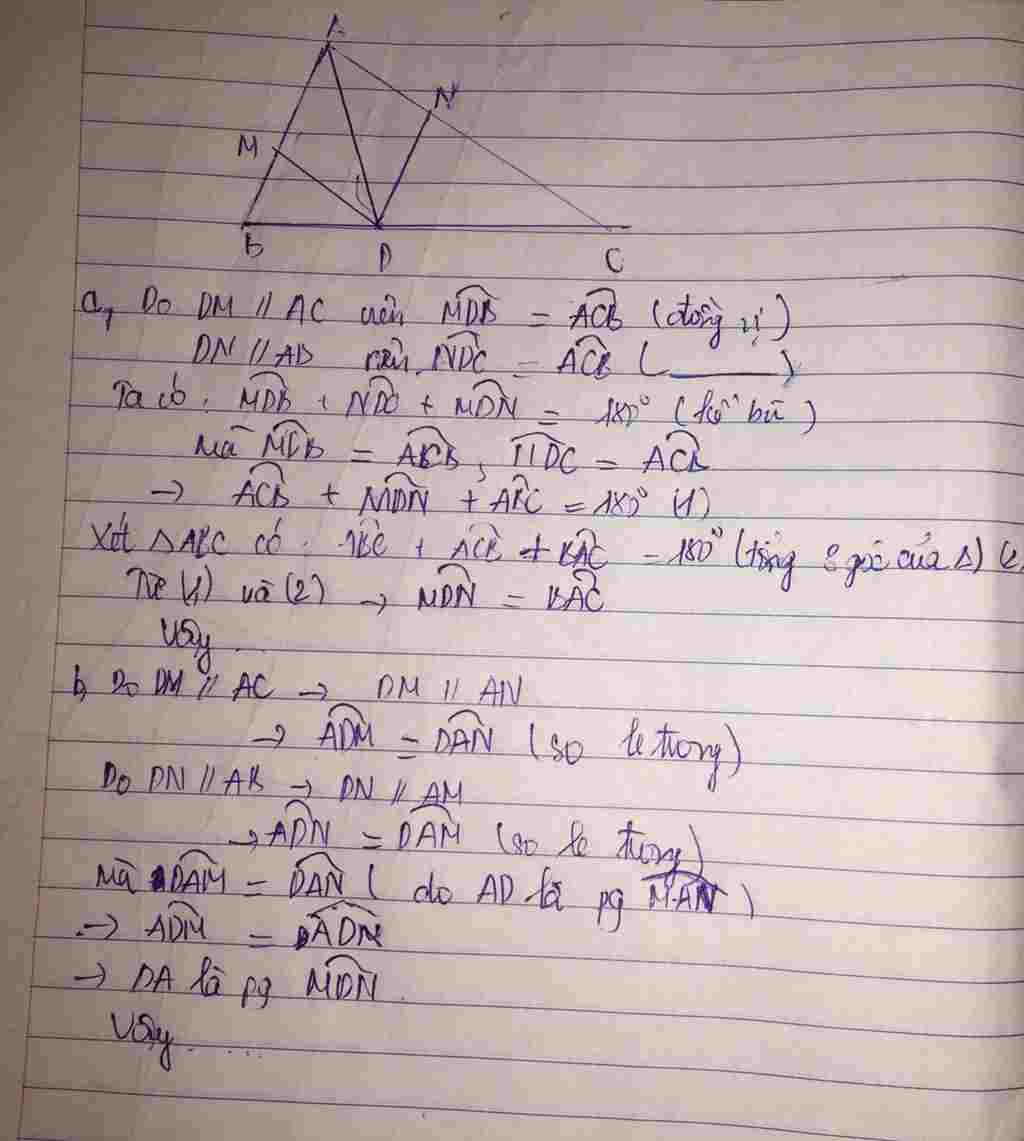 A
N
M
B
D
C
a, Do DM // AC nên MDB = ACB (đồng vị)
DN // AB nên NDC = ACB ( ______ )
Ta có: MDB + NDC + MDN = 180° (kề bù)
Mà MDB = ACB, NDC = ACB
→ ACB + MDN + ABC = 180° (1)
Xét ΔABC có: ABC + ACB + BAC = 180° (tổng 3 góc của Δ) (2)
Từ (1) và (2) → MDN = BAC
Vậy ...
b, Do DM // AC → DM // AN
→ ADM = DAN (so le trong)
Do DN // AB → DN // AM
→ ADN = DAM (so le trong)
Mà DAM = DAN ( do AD là pg MAN )
→ ADM = ADN
→ DA là pg MDN.
Vậy .....